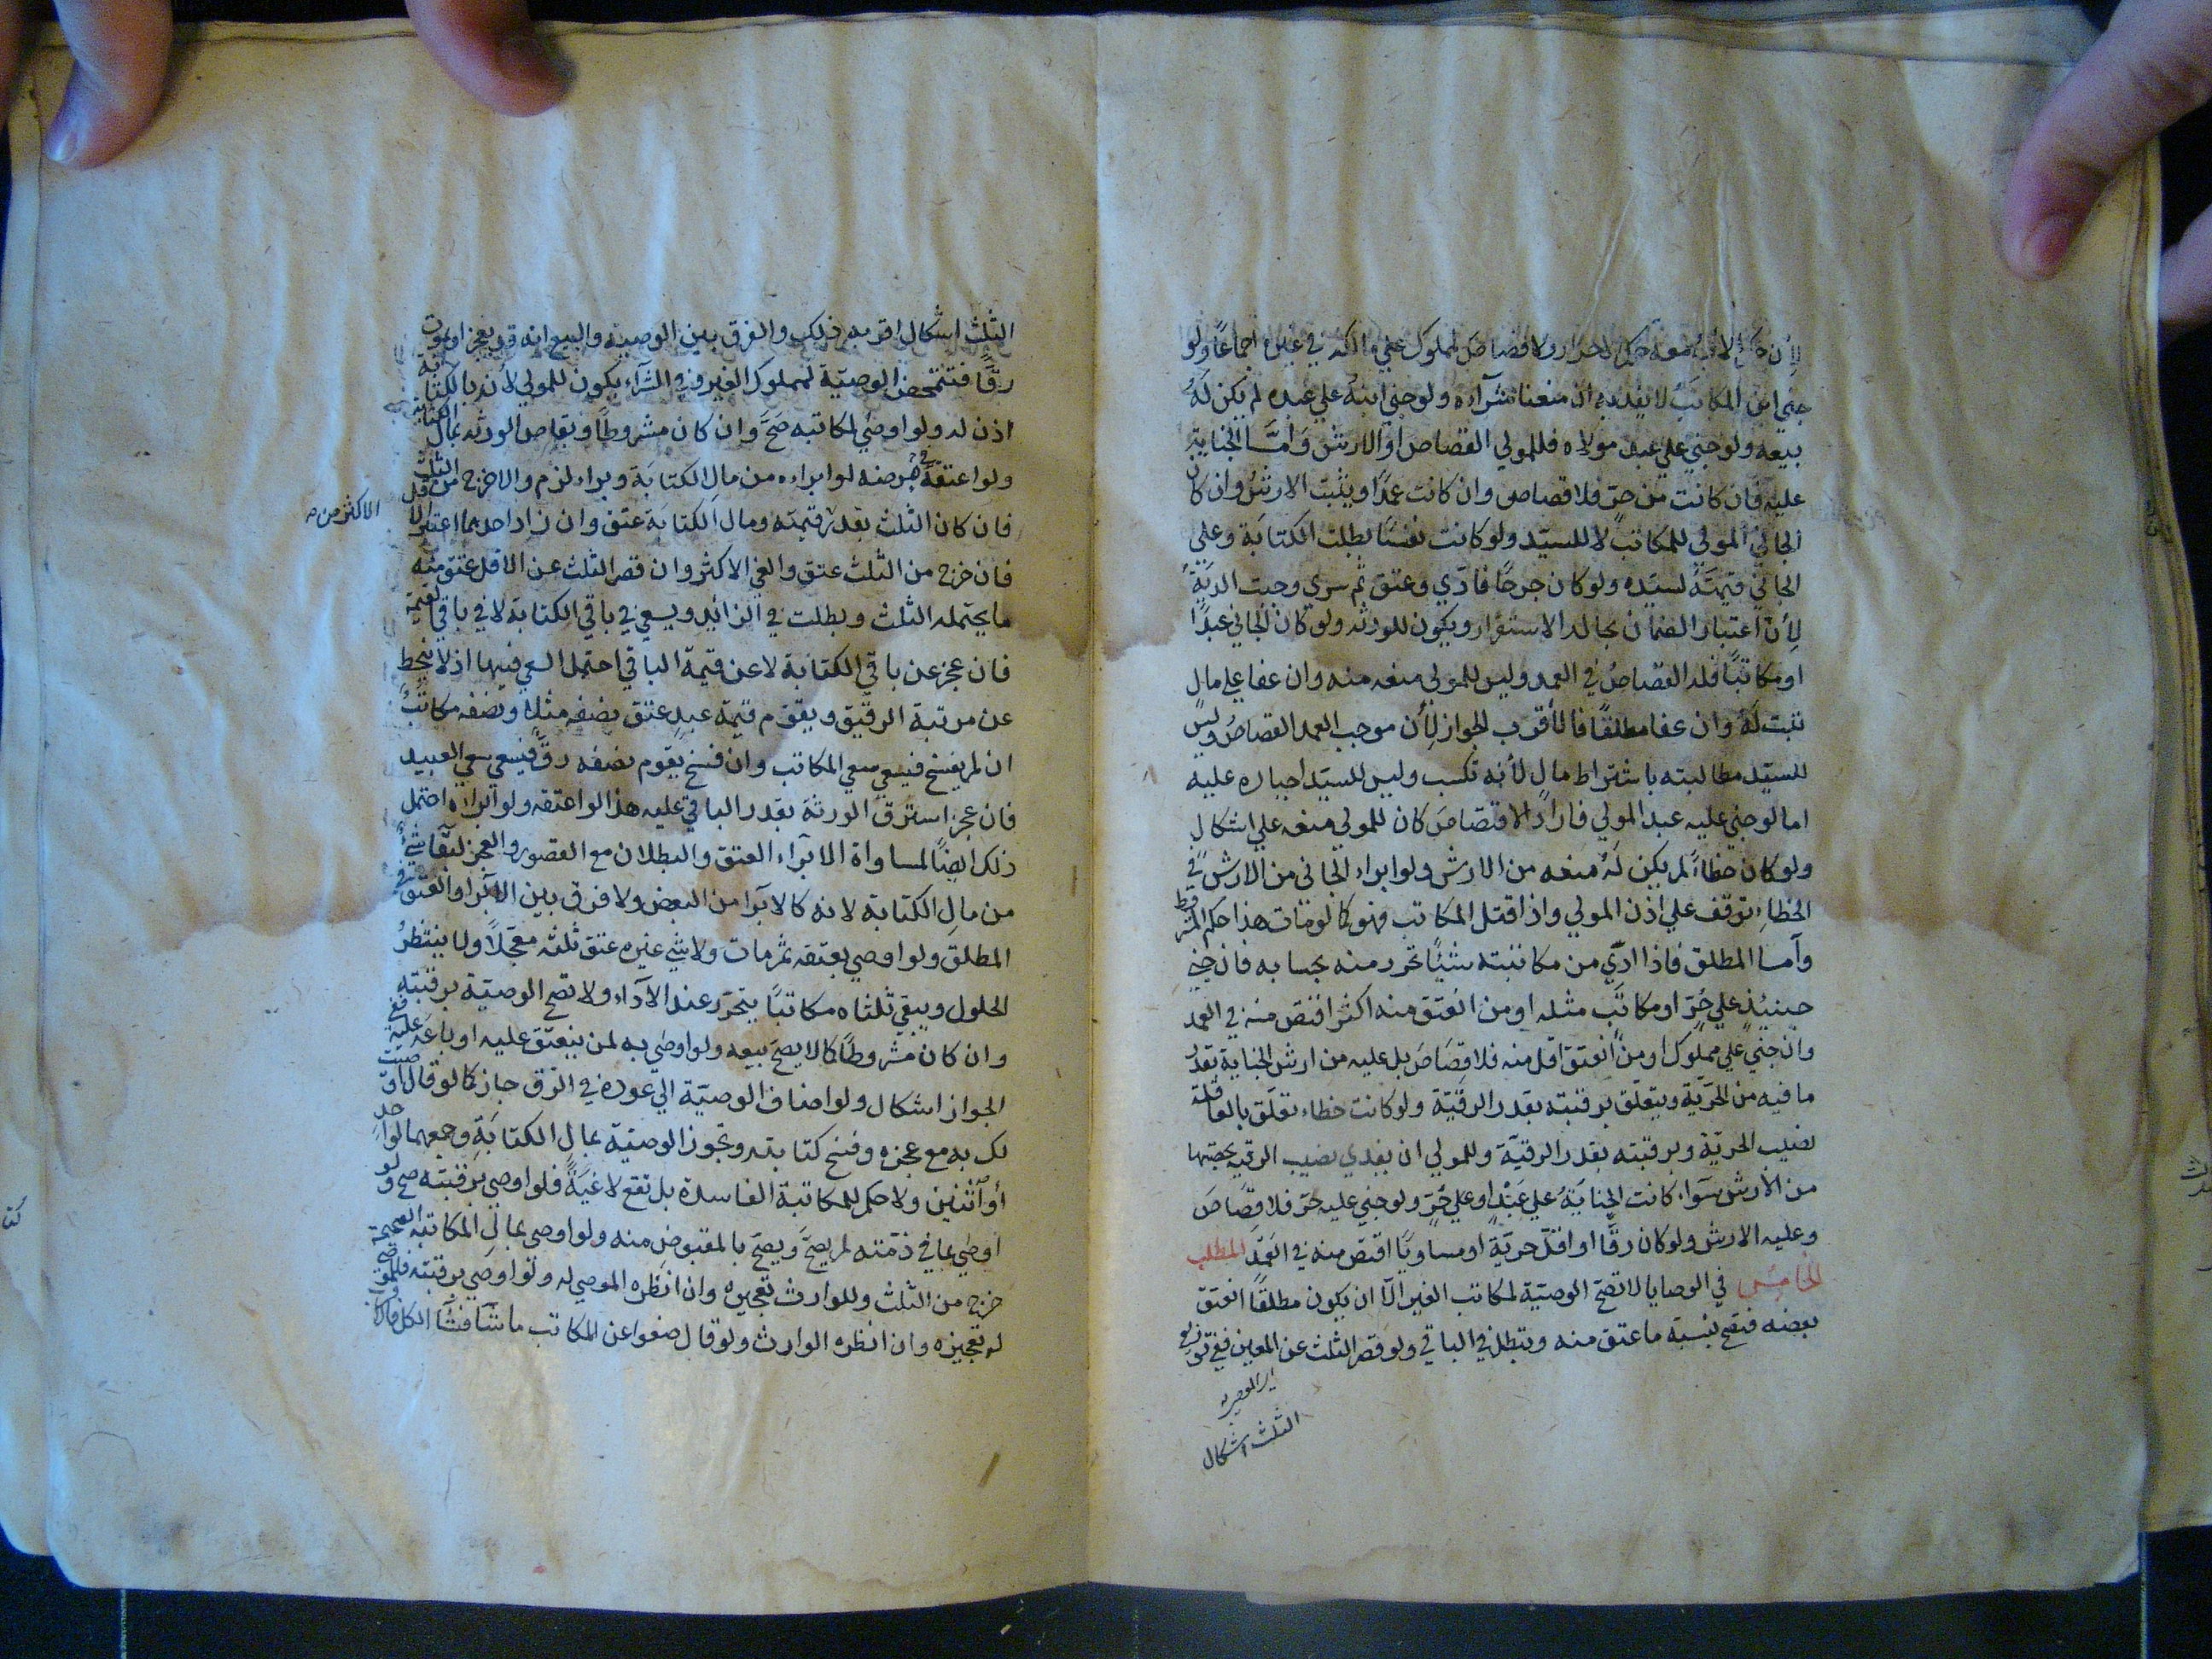 لأن حكم الأب معه حكم الاحرار ولا قصاص لمملوك علي مالكه في غيره اجماعًا ولو
جني ابن المكاتب لا يفديه ان منعنا شرآءه ولو جني ابنه علي عبده لم يكن له
بيعه ولو جني علي عبد مولاه فللمولي القصاص او الارش وأمّا الجناية
عليه فان كانت من حرّ فلا قصاص وان كانت عمدًا ويثبت الارش وان كان
الجاني المولي للمكاتب لا للسيّد ولو كانت نفسًا بطلت الكتابة وعلي
الجاني قيمته لسيّده ولو كان جرحًا فادّي وعتق ثم سري وجبت الديةُ
لأن اعتبار الضمان بحالة الاستقرار ويكون للورثة ولو كان الجاني عبدًا
او مكاتبًا فله القصاصُ في العمد وليس للمولي منعه منه وان عفا علي مال
ثبت له وان عفا مطلقًا فالأقرب الجواز لأن موجب العمد القصاصُ وليس
للسيّد مطالبته باشتراط مال لأنه تكسب وليس للسيّد اجباره عليه
اما لو جني عليه عبد المولي فاراد الاقتصاص كان للمولي منعه علي اشكال
ولو كان خطأً لم يكن له منعه من الارش ولو ابراء الجاني من الارش في
الخطاء توقف علي اذن المولي واذا قتل المكاتب فهو كما لو مات هذا حكم المشروط
وأما المطلق فاذا ادّي من مكاتبته شيئًا تحرر منه بحسابه فان جني
حينئذٍ علي حُرّ او مكاتَب مثله او من انعتق منه اكثر اقتص منه في العمد
وان جني علي مملوك او من انعتق اقل منه فلا قصاص بل عليه من ارش الجناية بقدر
ما فيه من الحريّة ويتعلق برقبته بقدر الرقيّة ولو كانت خطاء تعلق بالعاقلة
نصيب الحريّة وبرقبته بقدر الرقيّة وللمولي ان يفدي نصيب الرقية بحصتها
من الارش سوآء كانت الجناية علي عَبْدٍ او علي حُرّ ولو جني عليه حرّ فلا قصَاصَ
وعليه الارش ولو كان رقًّا او اقلّ حريّة او مساويًا اقتصّ منه في العمد المطلب
الخامس في الوصايا لا تصحّ الوصيّة لمكاتب الغير الّا ان يكون مطلقًا انعتق
بعضه فتصح بنسبة ما عتق منه وتبطل في الباقي ولو قصر الثلث عن المعين ففي توزيع
الثلث اشكال
الثلث اشكال اقربه ذلك والفرق بين الوصية والبيع انه قد يعجز او يموت
رقًّا فتتمحض الوصيّة لمملوك الغير وفي الشرآء يكون للمولي لأنه بالكتابة
اذن له ولو اوصي لمكاتبه صَحَّ وان كان مشروطًا ويقاص الورثة بمال الكتابة
ولو اعتقه في مرضه او ابراءه من مال الكتابة وبراء لزم والا خرج من الثلث
فان كان الثلث بقدر قيمته ومال الكتابة عتق وان زاد احدهما اعتبر الاقل
الاكثر من
فان خرج من الثلث عتق والغي الاكثر وان قصر الثلث عن الاقل عتق منه
ما يحتمله الثلث وبطلت في الزائد ويسعي في باقي الكتابة لا في باقي القيمة
فان عجز عن باقي الكتابة لا عن قيمة الباقي احتمل السعي فيها اذ لا ينحط
عن مرتبة الرقيق ويقوّم قيمة عبد عتق نصفه مثلًا ونصفه مكاتبٌ
ان لم يفسخ فيسعي سعي المكاتب وان فسخ يقوم نصفه رقّ فيسعي سعي العبيد
فان عجز استرق الورثة بقدر الباقي عليه هذا لو اعتقه ولو ابراءه احتمل
ذلك ايضًا لمساواة الابرآء العتق والبطلان مع القصور والعجز لبقاء شيءٍ
من مال الكتابة لانه كالابرآ من البعض ولا فرق بين الابرآ والعتق في
المطلق ولو اوصي بعتقه ثم مات ولا شيء غيره عتق ثلثه معجّلًا ولا ينتظر
الحلول ويبقي ثلثاه مكاتبًا يتحرّر عند الأداء ولا تصح الوصيّة برقبته
وان كان مشروطًا كما لا يصحّ بيعه ولو اوصي به لمن ينعتق عليه او باعه عليه ففي
الجواز اشكال ولو اضاف الوصيّة الي عوده في الرق جاز كما لو قال اوصيت
لك به مع عجزه وفسخ كتابته وتجوز الوصيّة بمال الكتابة وجمعهما لواحدٍ
أو أثنين ولا حكم للمكاتبة الفاسدة بل تقع لاغيةً فلو اوصي برقبته صح ولو
اوصي بما في ذمّته لم يصحّ ويصحّ بالمقبوض منه ولو اوصي بمال المكاتبة الصحيحة
خرج من الثلث وللوارث تعجيزه وان انظره الموصي له ولو اوصي برقبته فللموصي
له تعجيزه وان انظره الوارث ولو قال ضعوا عن المكاتب ما شآ فشآ الكل